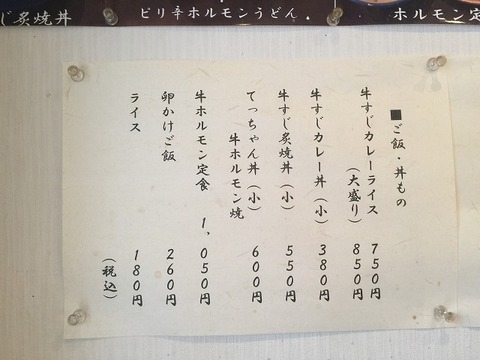 じ炭焼丼
ピリ辛ホルモンうどん。
ホルモン定
■ご飯・丼もの
牛すじカレーライス 750円
(大盛り) 850円
牛すじカレー丼(小) 380円
牛すじ炭焼丼(小) 550円
てっちゃん丼(小) 600円
牛ホルモン焼
牛ホルモン定食 1,050円
卵かけご飯 260円
ライス 180円
(税込)